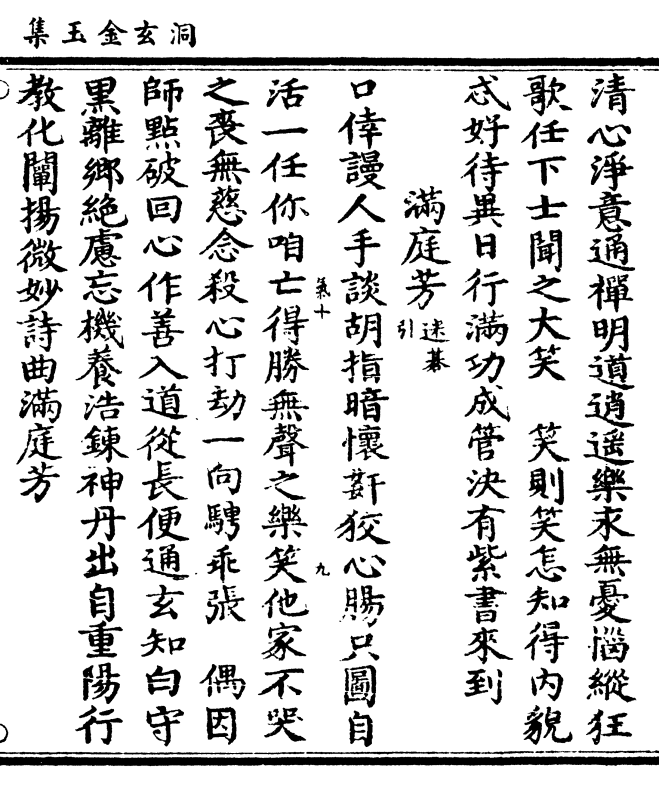 洞玄金玉集
清心淨意通禪明道逍遥樂求無憂惱縱狂
歌任下士聞之大笑　笑則笑怎知得内貌
忒好待異日行滿功成管決有紫書來到
滿庭芳 迷棊引
口倖謾人手談胡指暗懷姧狡心腸只圖自
活一任你咱亡得勝無聲之樂笑他家不哭
之喪無慈念殺心打劫一向騁乖張　偶因
師點破回心作善入道從長便通玄知白守
黑離鄉絶慮忘機養浩鍊神丹出自重陽行
教化闡揚微妙詩曲滿庭芳
氣十
九